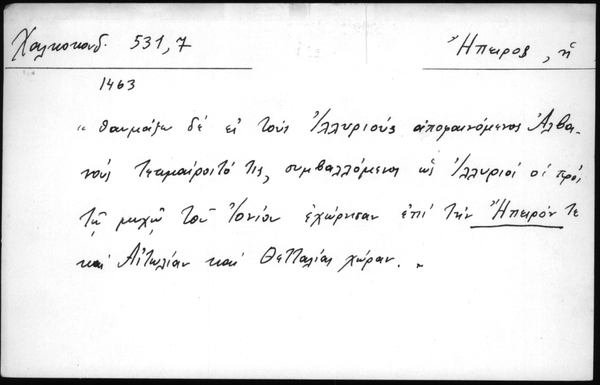 Χαλκοκονδ. 531,7
Ἤπειρος, ἡ
1463
"θαυμάζω δέ εἰ τοὺς Ἰλλυριοὺς ἀποφαινόμενος Ἀλβα-
νοὺς τεκμαίροιτό τις, συμβαλλόμενος ὡς Ἰλλυριοὶ οἱ πρὸς
τῷ μυχῷ τοῦ Ἰονίου ἐχώρησαν ἐπὶ τὴν Ἤπειρόν τε
καὶ Αἰτωλίαν καὶ Θετταλίας χώραν."